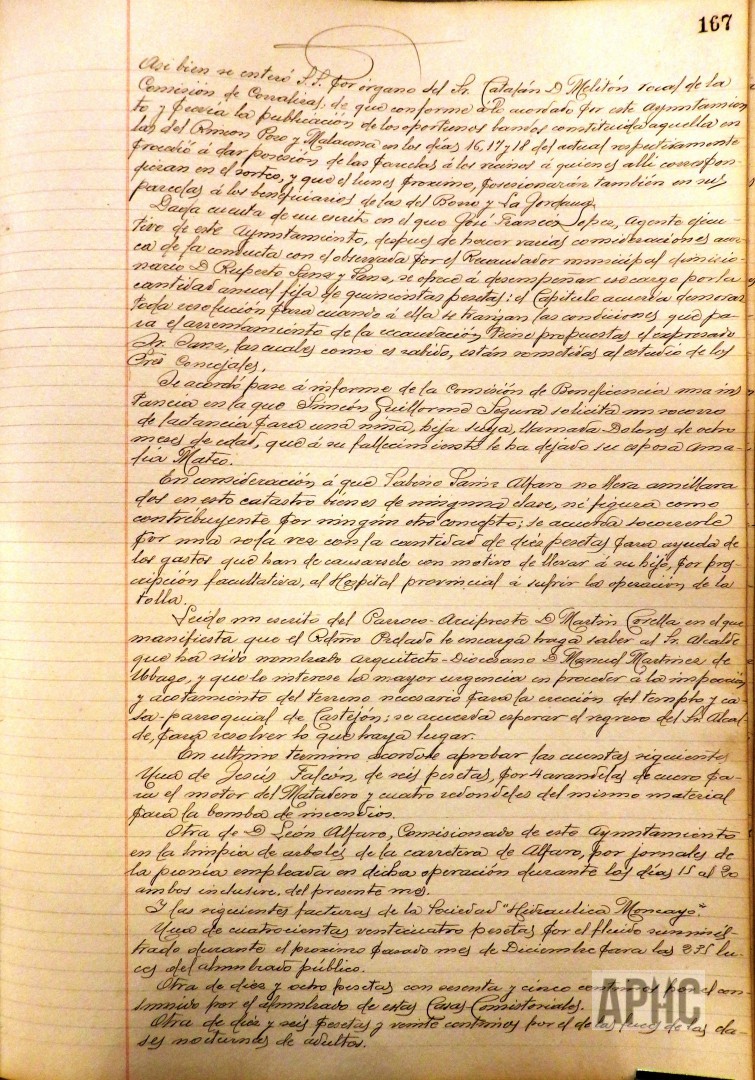 167
Asi bien se enteró S.S. por órgano del Sr. Catalán D. Melitón vocal de la
Comisión de Corralizas, de que conforme á lo acordado por este Ayuntamien
to y previa la publicación de los oportunos bandos constituida aquella en
las del Rincon Poro y Malauna en los dias 16, 17 y 18 del actual respectivamente
procedió á dar posesión de las parcelas á los vecinos á quienes alli correspon-
dieran en el sorteo, y que el lunes próximo, posesionarán tambien en sus
parcelas á los beneficiarios de las del Borro y La Jordana.
Dada cuenta de un escrito en el que José Francés Lopez, Agente ejecu-
tivo de este Ayuntamiento, despues de hacer varias consideraciones acer-
ca de la conducta con el observada por el Recaudador municipal dimisio-
nario D. Ruperto Sanz y Sanz, se ofrece á desempeñar ese cargo por la
cantidad anual fija de quinientas pesetas: el Capítulo acuerda demorar
toda resolución para cuando á ella se traigan las condiciones que pa-
ra el arrendamiento de la recaudación, tiene propuestas el expresado
Sr. Sanz, las cuales como es sabido, están sometidas al estudio de los
Sres. Concejales.
Se acordó pase á informe de la Comisión de Beneficencia una ins
tancia en la que Simeón Guillorme Segura solicita un socorro
de lactancia para una niña, hija suya, llamada Dolores de ocho
meses de edad, que á su fallecimiento le ha dejado su esposa Ama-
lia Mateo.
En consideración á que Sabino Sainz Alfaro no lleva amillara
dos en este catastro bienes de ninguna clase, ni figura como
contribuyente por ningún otro concepto; se acuerda socorrerle
por una sola vez con la cantidad de diez pesetas para ayuda de
los gastos que han de causarsele con motivo de llevar á su hijo, por pres-
cripción facultativa, al Hospital provincial á sufrir la operación de la
talla.
Leido un escrito del Parroco-Arcipreste D. Martin Corella en el que
manifiesta que el Rdmo. Prelado le encarga haga saber al Sr. Alcalde
que ha sido nombrado Arquitecto-Diocesano D. Manuel Martinez de
Ubago, y que le interese la mayor urgencia en proceder á la inspección
y acotamiento del terreno necesario para la erección del templo y ca-
sa-parroquial de Castejón; se acuerda esperar el regreso del Sr. Alcal-
de, para resolver lo que haya lugar.
En ultimo termino acordose aprobar las cuentas siguientes
Una de Jesús Falcón, de seis pesetas, por 4 arandelas de cuero pa-
ra el motor del Matadero y cuatro redondeles del mismo material
para la bomba de incendios.
Otra de D. León Alfaro, Comisionado de este Ayuntamiento
en la limpia de arboles de la carretera de Alfaro, por jornales de
la peonía empleada en dicha operación durante los dias 15 al 20
ambos inclusive, del presente mes.
Y las siguientes facturas de la Sociedad "Hidraulica Moncayo".
Una de cuatrocientas venticuatro pesetas por el fluido suminis-
trado durante el proximo pasado mes de Diciembre para las 275 lu-
ces del alumbrado público.
Otra de diez y ocho pesetas con sesenta y cinco centimos por el con-
sumido por el alumbrado de estas Casas-Consistoriales.
Otra de diez y seis pesetas y veinte centimos por el de las luces de las cla-
ses nocturnas de adultos.
APHC